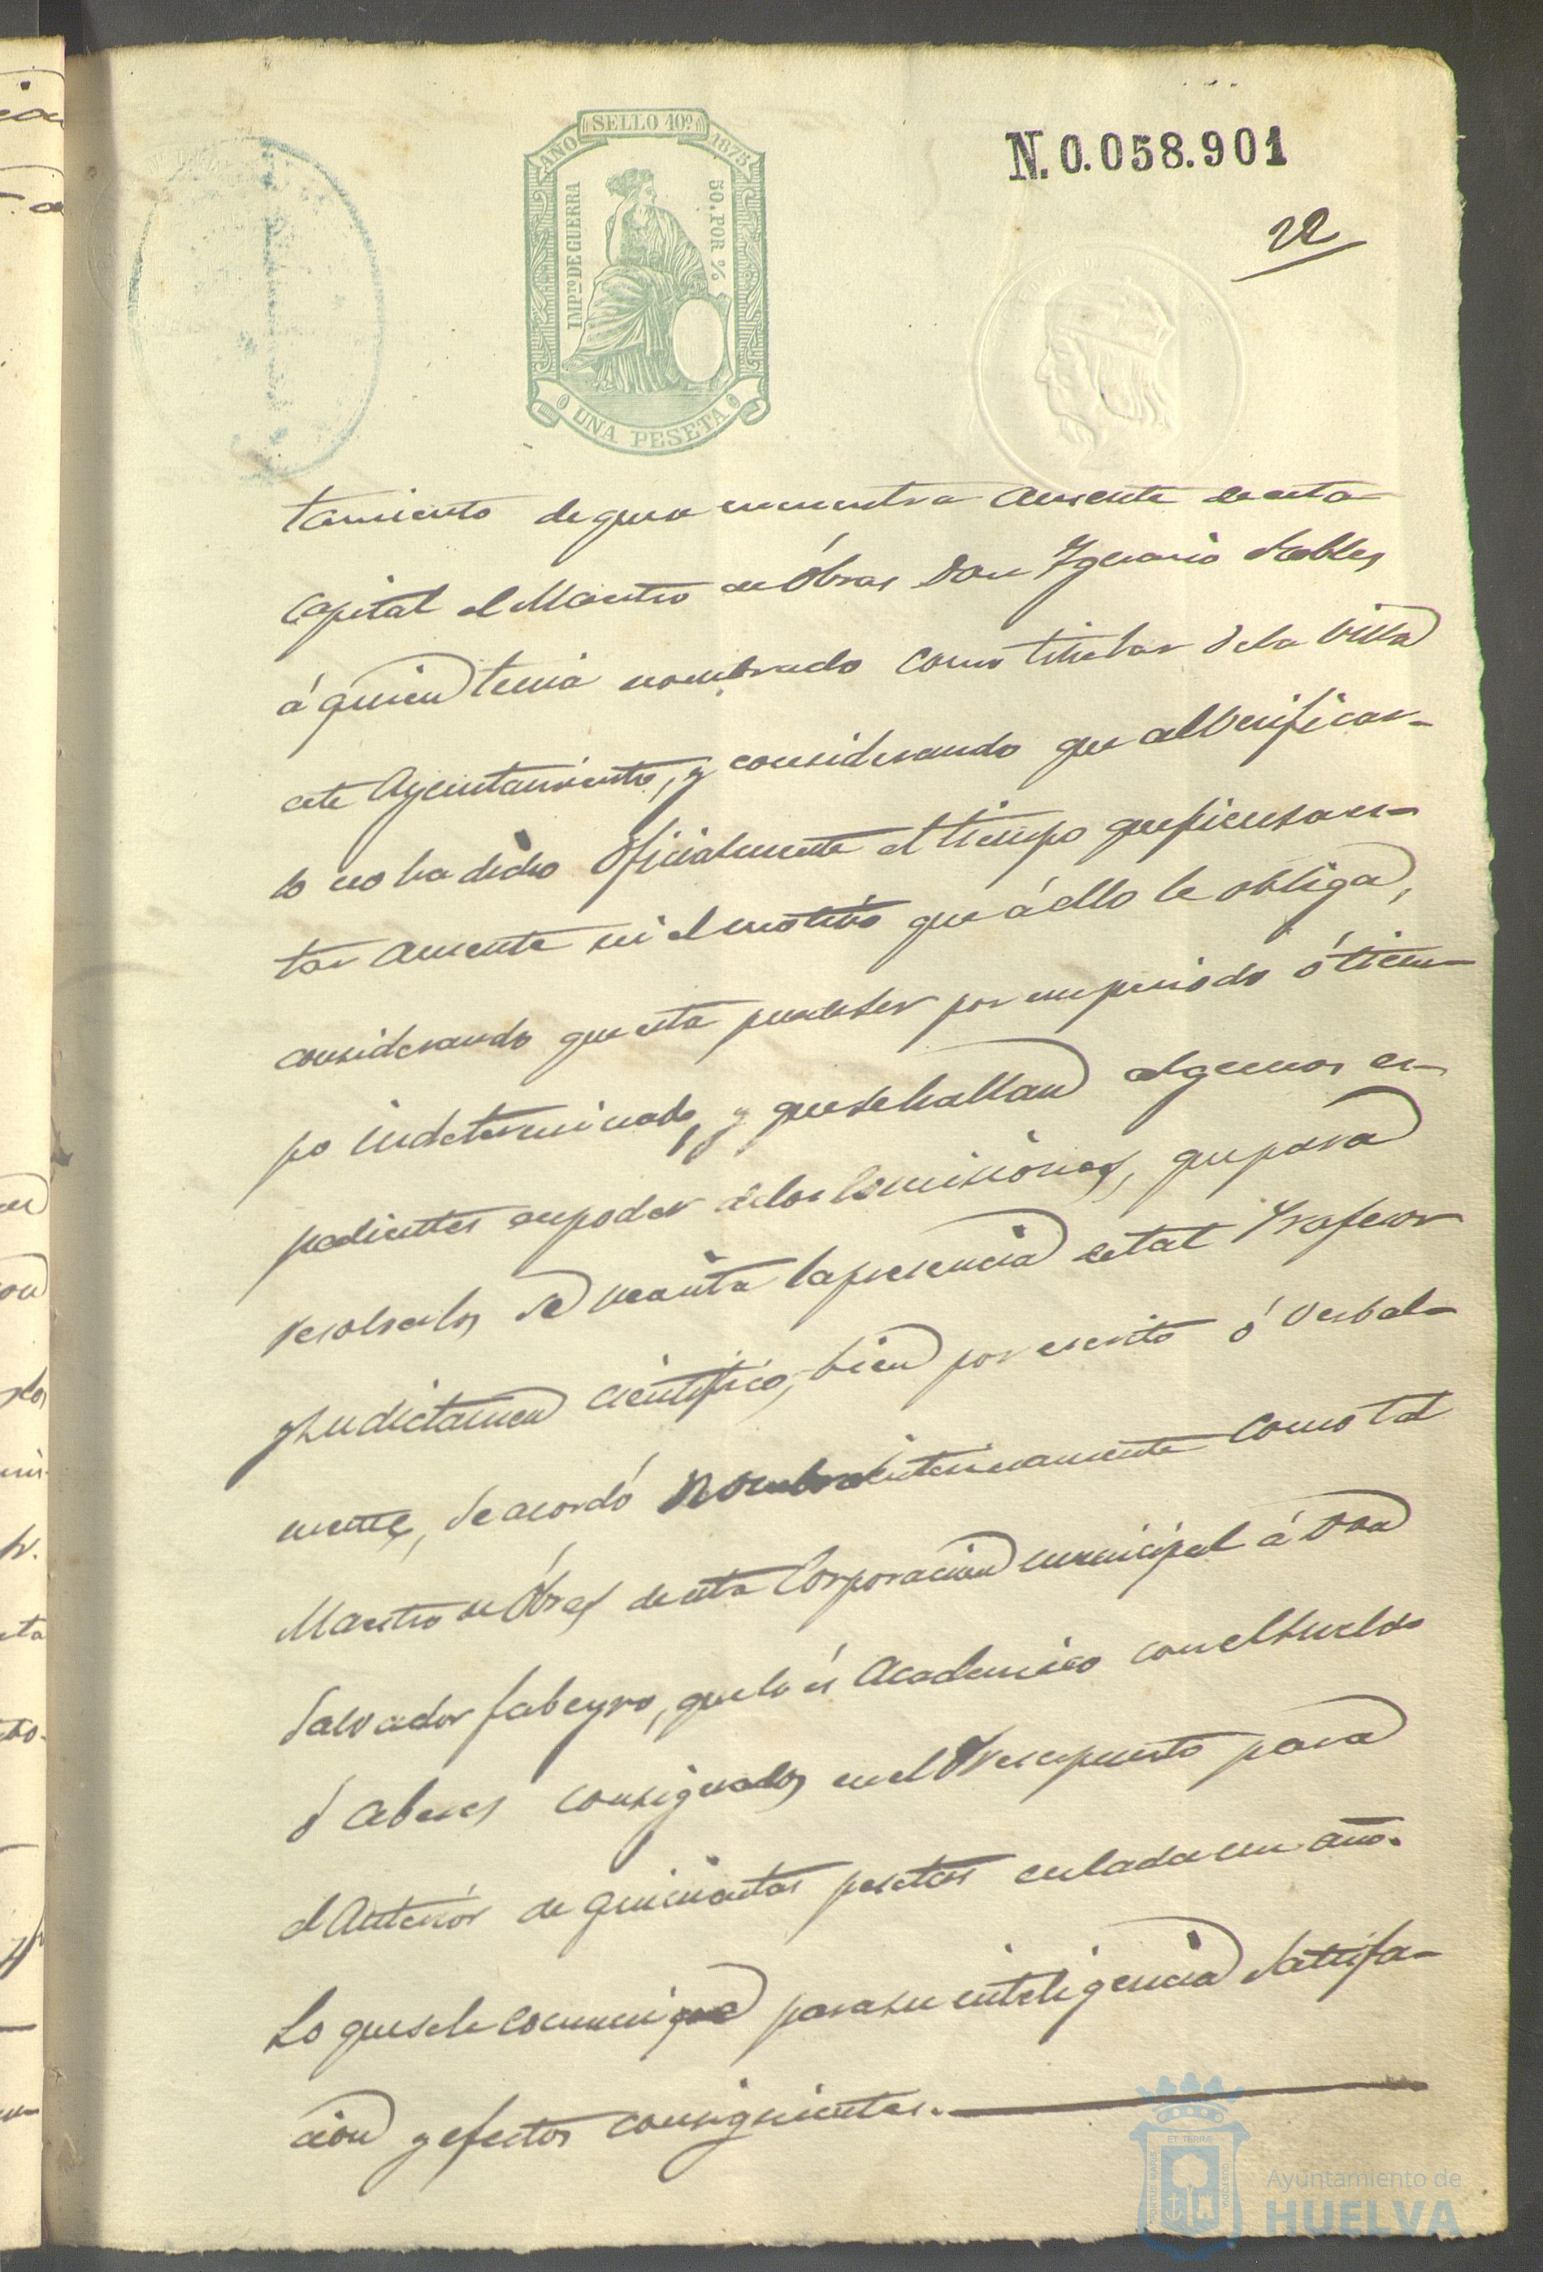 AÑO SELLO 10º 1875
IMPTO DE GUERRA
50. POR %
UNA PESETA
N. 0.058.901
22
tamiento de que se encuentra ausente de esta
capital el Maestro de Obras Don Ygnacio Robles
á quien tenia nombrado como titular de la Villa
este Ayuntamiento, y considerando que al verificar-
lo no ha dicho oficialmente el tiempo que piensa es-
tar ausente ni el motivo que á ello le obliga,
considerando que esta puede ser por un periodo ó tiem-
po indeterminado, y que se hallan algunos es-
pedientes en poder de las Comisiones, que para
resolverlos se necesita la presencia de tal Profesor
y su dictamen cientifico, bien por escrito ó verbal-
mente, se acordó nombrar interinamente como tal
Maestro de Obras de esta Corporacion municipal á Don
Salvador Fabeyro, que lo és Academico con el sueldo
ó aberes consignados en el Presupuesto para
el Anterior de quinientas pesetas en cada un año.
Lo que se le comunique para su inteligencia satisfa-
cion y efectos consiguientes.
Ayuntamiento de
HUELVA